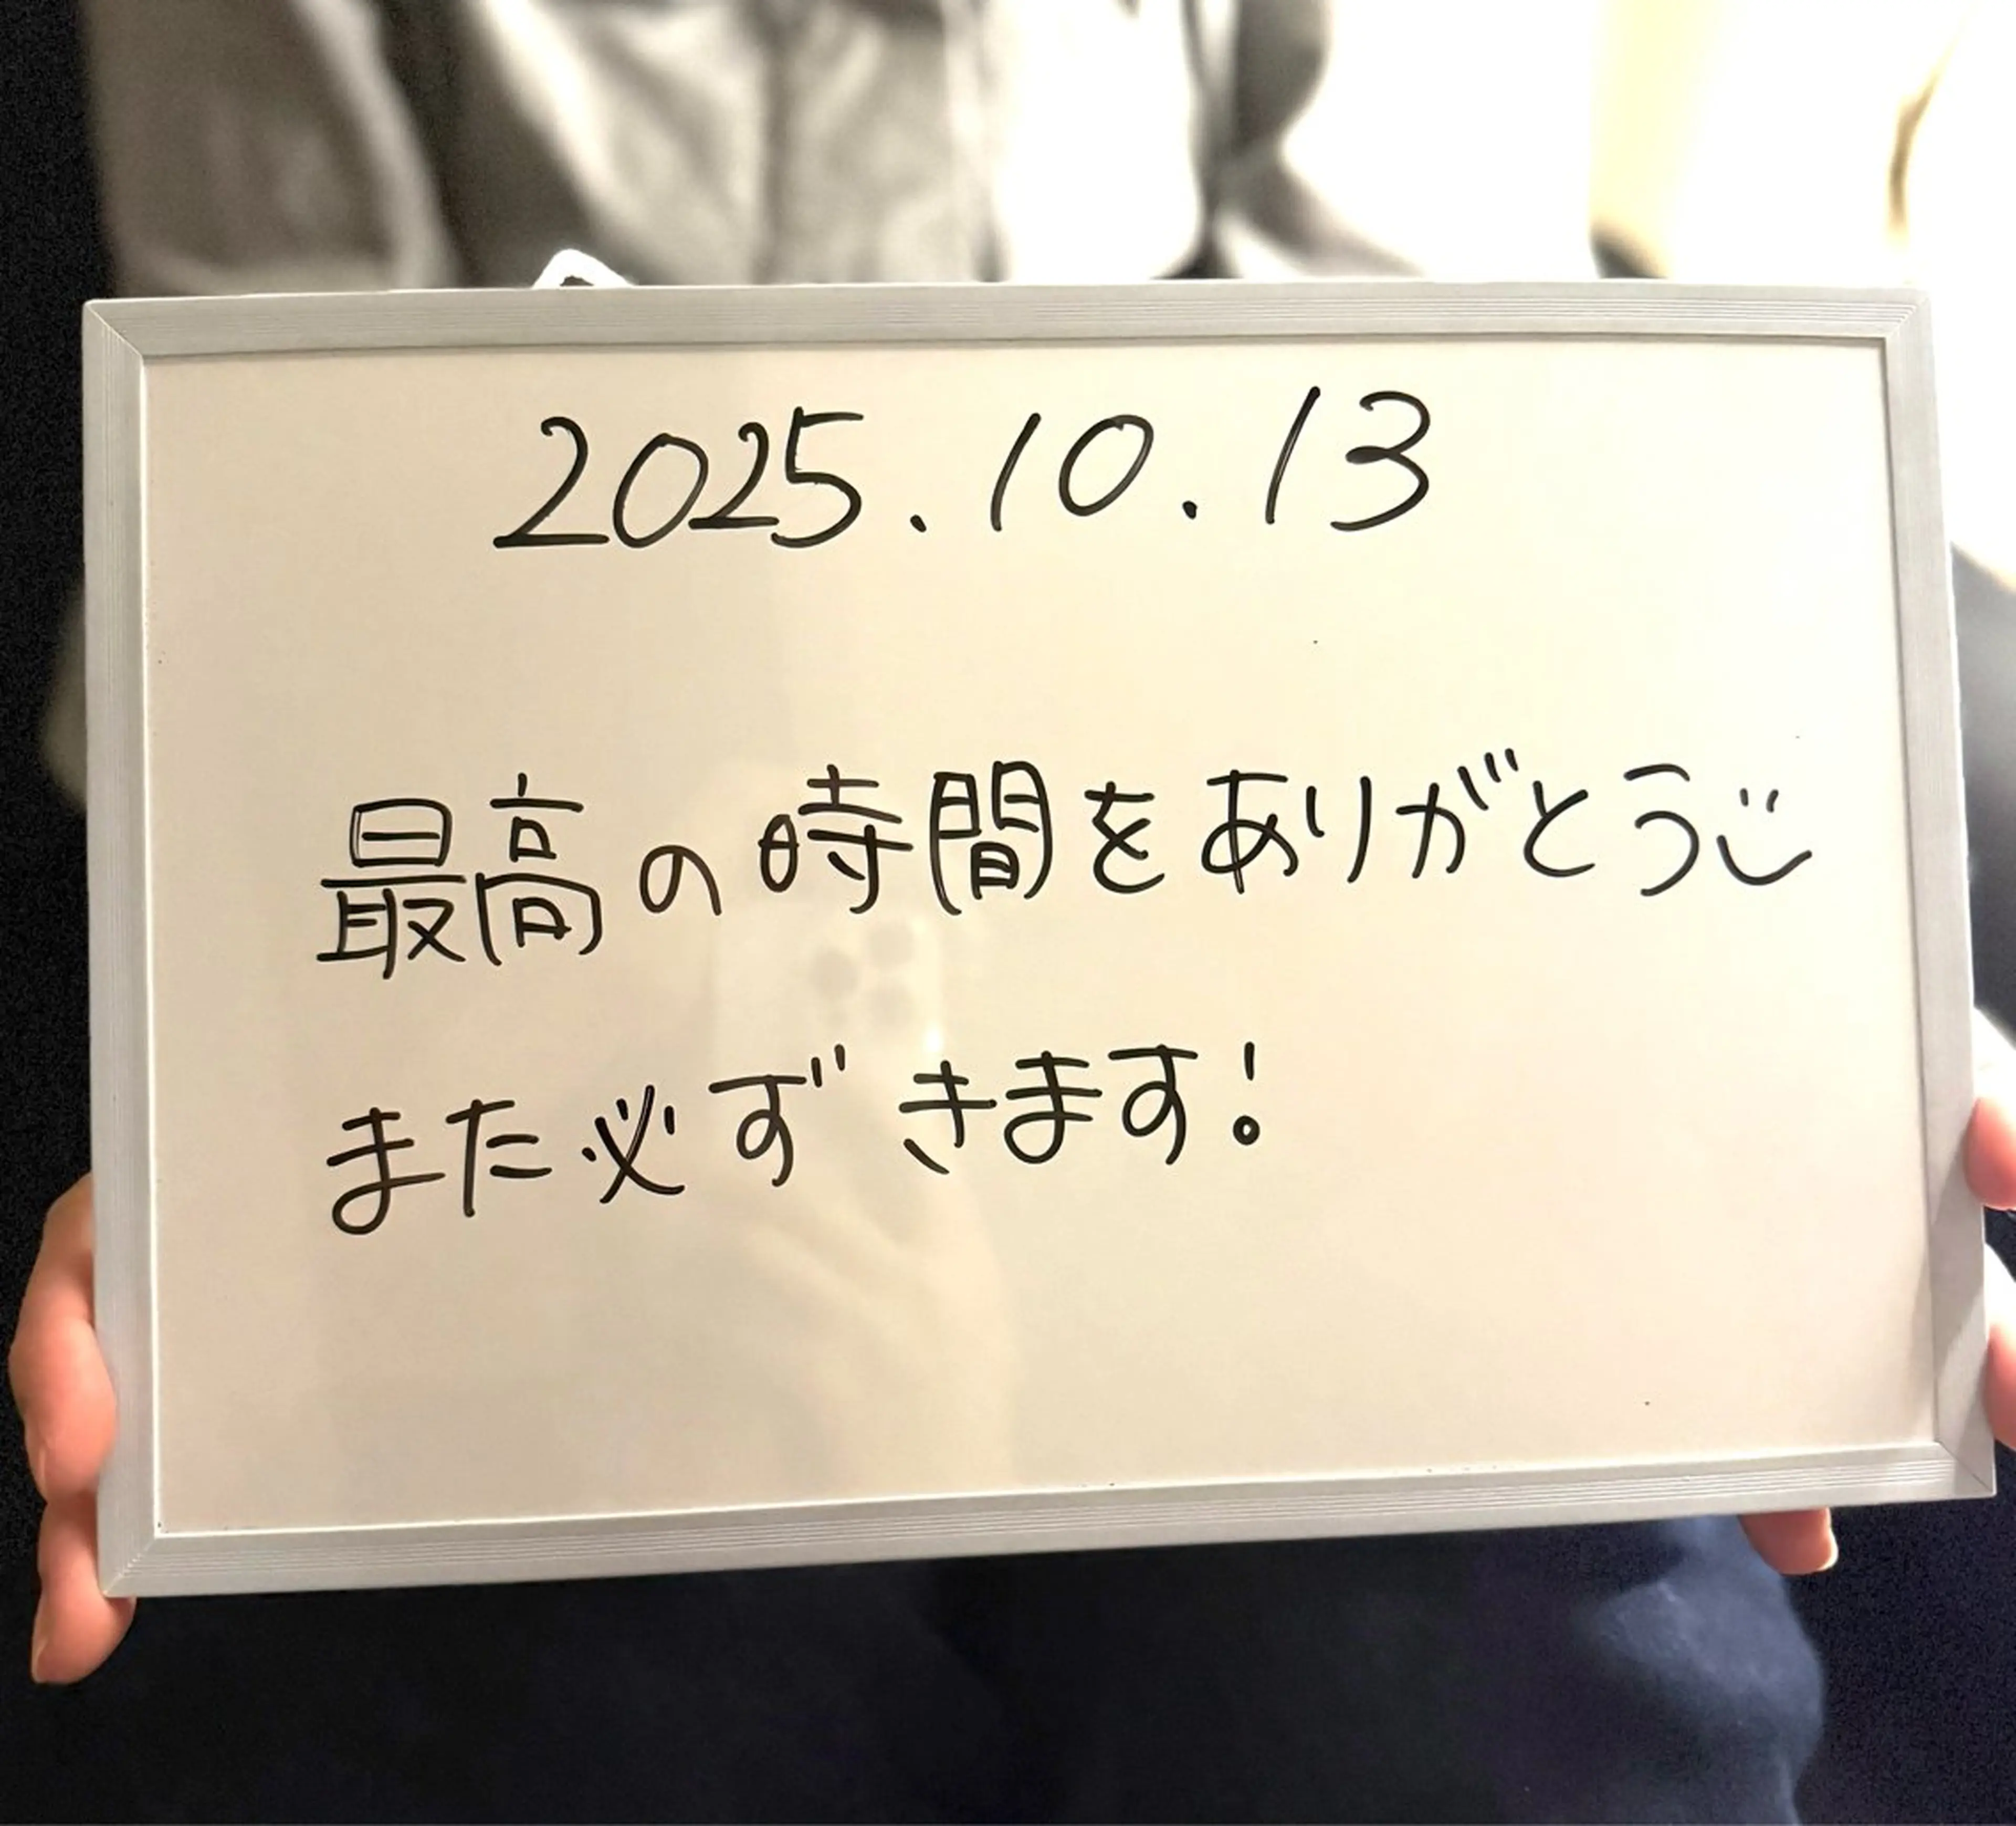 2025.10.13
最高の時間をありがとう¨̮
また必ずきます!